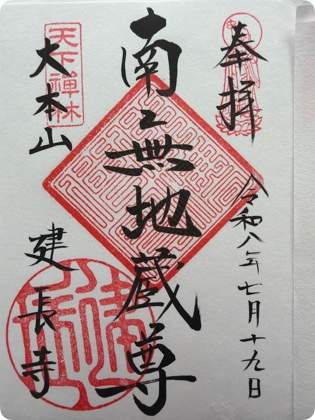 奉拝
令和八年七月十九日
南無地蔵尊
天下禅林
大本山
建長寺